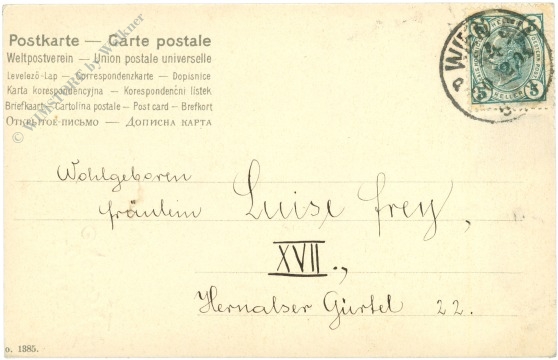 Postkarte — Carte postale
Weltpostverein — Union postale universelle
Levelező-Lap — Correspondenzkarte — Dopisnice
Karta korespondencyjna — Korespondenční lístek
Briefkaart — Cartolina postale — Post card — Brefkort
Открытое письмо — Дописна карта
© WIENSPORT by Winkner
WIEN
5 HELLER 5
Wohlgeboren
Fräulein Luise Frey,
XVII.,
Hernalser Gürtel 22.
o. 1885.